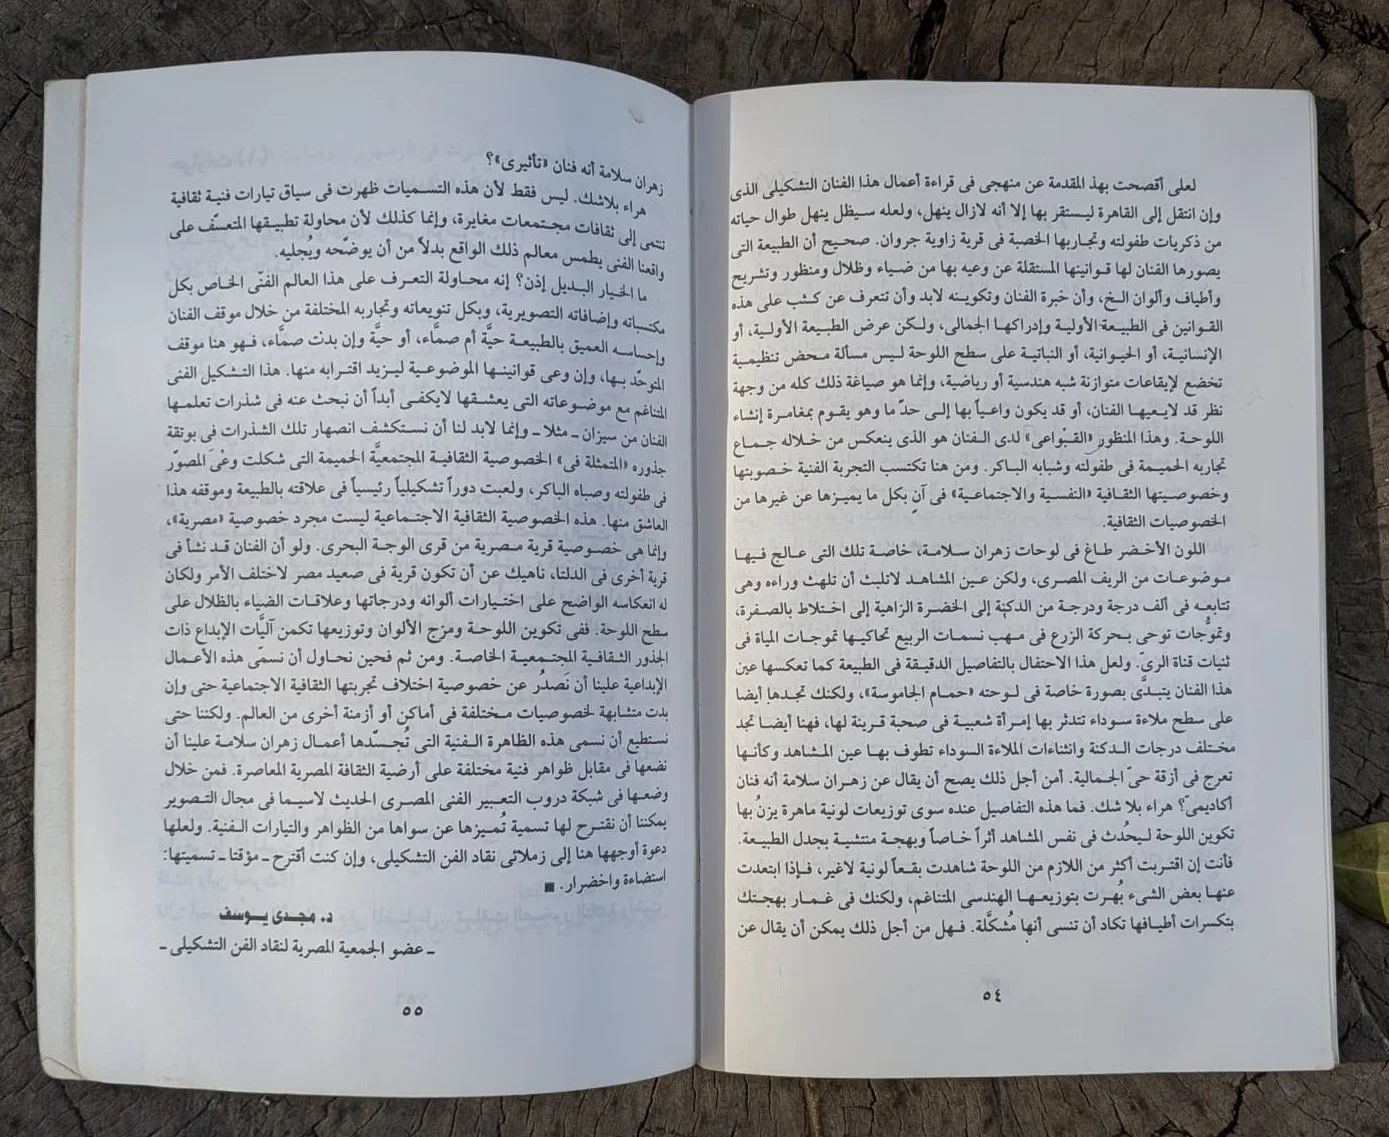 لعلى أفصحت بهذ المقدمة عن منهجى فى قراءة أعمال هذا الفنان التشكيلى الذى
وإن انتقل إلى القاهرة ليستقر بها إلا أنه لازال ينهل، ولعله سيظل ينهل طوال حياته
من ذكريات طفولته وتجاربها الخصبة فى قرية زاوية جروان. صحيح أن الطبيعة التى
يصورها الفنان لها قوانينها المستقلة عن وعيه بها من ضياء وظلال ومنظور وتشريح
وأطياف وألوان الخ، وأن خبرة الفنان وتكوينه لابد وأن تتعرف عن كثب على هذه
القوانين فى الطبيعة الأولية وإدراكها الجمالى، ولكن عرض الطبيعة الأولية، أو
الإنسانية، أو الحيوانية، أو النباتية على سطح اللوحة ليس مسألة محض تنظيمية
تخضع لإيقاعات متوازنة شبه هندسية أو رياضية، وإنما هو صياغة ذلك كله من وجهة
نظر قد لايعيها الفنان، أو قد يكون واعياً بها إلى حدّ ما وهو يقوم بمغامرة إنشاء
اللوحة. وهذا المنظور «القبْواعى» لدى الفنان هو الذى ينعكس من خلاله جماع
تجاربه الحميمة فى طفولته وشبابه الباكر. ومن هنا تكتسب التجربة الفنية خصوبتها
وخصوصيتها الثقافية «النفسية والاجتماعية» فى آنٍ بكل ما يميزها عن غيرها من
الخصوصيات الثقافية.
اللون الأخضر طاغ فى لوحات زهران سلامة، خاصة تلك التى عالج فيها
موضوعات من الريف المصرى، ولكن عين المشاهد لاتلبث أن تلهث وراءه وهى
تتابعه فى ألف درجة ودرجة من الدكنة إلى الخضرة الزاهية إلى اختلاط بالصفرة،
وتموُّجات توحى بحركة الزرع فى مهب نسمات الربيع تحاكيها تموجات المياة فى
ثنيات قناة الرىّ. ولعل هذا الاحتفال بالتفاصيل الدقيقة فى الطبيعة كما تعكسها عين
هذا الفنان يتبدَّى بصورة خاصة فى لوحته «حمام الجاموسة»، ولكنك تجدها أيضا
على سطح ملاءة سوداء تتدثر بها إمرأة شعبية فى صحبة قرينة لها، فهنا أيضا تجد
مختلف درجات الدكنة وانثناءات الملاءة السوداء تطوف بها عين المشاهد وكأنها
تعرج فى أزقة حىّ الجمالية. أمن أجل ذلك يصح أن يقال عن زهران سلامة أنه فنان
أكاديمى؟ هراء بلا شك. فما هذه التفاصيل عنده سوى توزيعات لونية ماهرة يزنُ بها
تكوين اللوحة ليحُدث فى نفس المشاهد أثراً خاصاً وبهجة منتشية بجدل الطبيعة.
فأنت إن اقتربت أكثر من اللازم من اللوحة شاهدت بقعاً لونية لاغير، فإذا ابتعدت
عنها بعض الشىء بُهرت بتوزيعها الهندسى المتناغم، ولكنك فى غمار بهجتك
بتكسرات أطيافها تكاد أن تنسى أنها مُشكَّلة. فهل من أجل ذلك يمكن أن يقال عن
٥٤
زهران سلامة أنه فنان «تأثيرى»؟
هراء بلاشك. ليس فقط لأن هذه التسميات ظهرت فى سياق تيارات فنية ثقافية
تنتمى إلى ثقافات مجتمعات مغايرة، وإنما كذلك لأن محاولة تطبيقها المتعسّف على
واقعنا الفنى يطمس معالم ذلك الواقع بدلاً من أن يوضّحه ويُجليه.
ما الخيار البديل إذن؟ إنه محاولة التعرف على هذا العالم الفنّى الخاص بكل
مكتسباته وإضافاته التصويرية، وبكل تنويعاته وتجاربه المختلفة من خلال موقف الفنان
وإحساسه العميق بالطبيعة حيَّة أم صمَّاء، أو حيَّة وإن بدت صمَّاء، فهو هنا موقف
المتوحّد بها، وإن وعى قوانينها الموضوعية ليزيد اقترابه منها. هذا التشكيل الفنى
المتناغم مع موضوعاته التى يعشقها لايكفى أبداً أن نبحث عنه فى شذرات تعلمها
الفنان من سيزان ـ مثلا ـ وإنما لابد لنا أن نستكشف انصهار تلك الشذرات فى بوتقة
جذوره «المتمثلة فى» الخصوصية الثقافية المجتمعيَّة الحميمة التى شكلت وعْىَ المصوّر
فى طفولته وصباه الباكر، ولعبت دوراً تشكيلياً رئيسياً فى علاقته بالطبيعة وموقفه هذا
العاشق منها. هذه الخصوصية الثقافية الاجتماعية ليست مجرد خصوصية «مصرية»،
وإنما هى خصوصية قرية مصرية من قرى الوجة البحرى. ولو أن الفنان قد نشأ فى
قرية أخرى فى الدلتا، ناهيك عن أن تكون قرية فى صعيد مصر لاختلف الأمر ولكان
له انعكاسه الواضح على اختيارات ألوانه ودرجاتها وعلاقات الضياء بالظلال على
سطح اللوحة. ففى تكوين اللوحة ومزج الألوان وتوزيعها تكمن آليَّات الإبداع ذات
الجذور الثقافية المجتمعية الخاصة. ومن ثم فحين نحاول أن نسمّى هذه الأعمال
الإبداعية علينا أن نَصدُر عن خصوصية اختلاف تجربتها الثقافية الاجتماعية حتى وإن
بدت متشابهة لخصوصيات مختلفة فى أماكن أو أزمنة أخرى من العالم. ولكننا حتى
نستطيع أن نسمى هذه الظاهرة الفنية التى تُجسّدها أعمال زهران سلامة علينا أن
نضعها فى مقابل ظواهر فنية مختلفة على أرضية الثقافة المصرية المعاصرة. فمن خلال
وضعها فى شبكة دروب التعبير الفنى المصرى الحديث لاسيما فى مجال التصوير
يمكننا أن نقترح لها تسمية تُميزها عن سواها من الظواهر والتيارات الفنية. ولعلها
دعوة أوجهها هنا إلى زملائى نقاد الفن التشكيلى، وإن كنت أقترح ـ مؤقتا ـ تسميتها:
استضاءة واخضرار. ■
د. مجدى يوسف
ـ عضو الجمعية المصرية لنقاد الفن التشكيلى ـ
٥٥